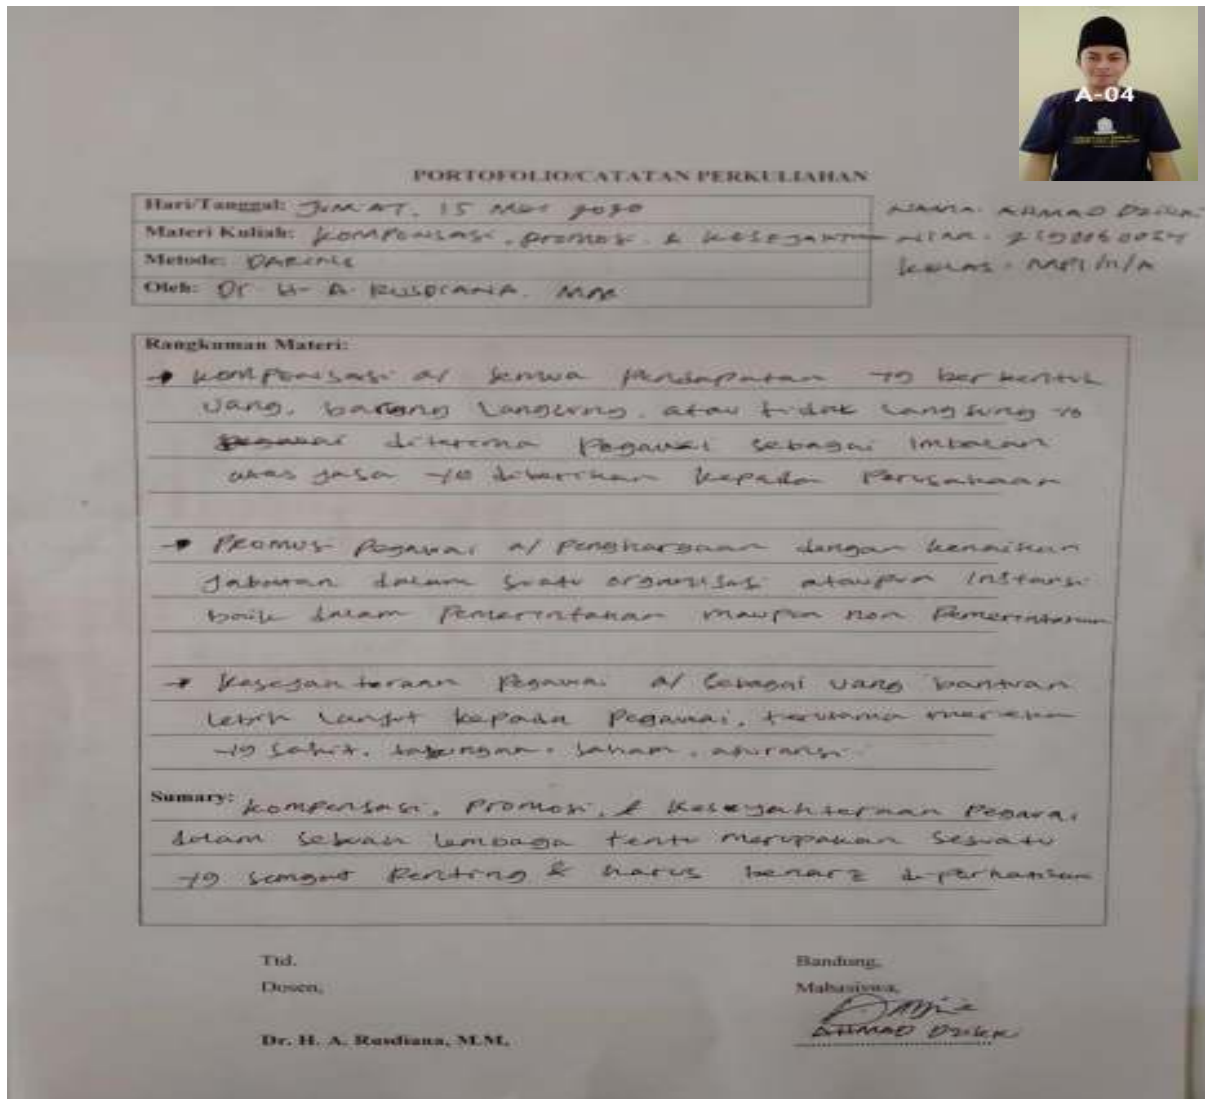 A-04
PORTOFOLIO/CATATAN PERKULIAHAN
Hari/Tanggal: JUMAT, 15 Mei 2020
NAMA: AHMAD DZIKRI
Materi Kuliah: Kompensasi, promosi, & kesejaht
NIM:
Metode: DARING
KELAS: MPI/IV/A
Oleh: Dr H. A. RUSDIANA, MM
Rangkuman Materi:
→ Kompensasi a/ semua pendapatan yg berbentuk
uang, barang langsung, atau tidak langsung yg
diterima pegawai sebagai imbalan
atas jasa yg diberikan kepada perusahaan
→ Promosi pegawai a/ penghargaan dengan kenaikan
jabatan dalam suatu organisasi ataupun instansi
baik dalam pemerintahan maupun non pemerintahan
→ Kesejahteraan pegawai a/ sebagai uang bantuan
lebih lanjut kepada pegawai, terutama mereka
yg sakit, tabungan, saham, asuransi.
Sumary: Kompensasi, promosi, & kesejahteraan pegawai
dalam sebuah lembaga tentu merupakan sesuatu
yg sangat penting & harus benar2 diperhatikan
Ttd. Bandung,
Dosen, Mahasiswa,
Dr. H. A. Rusdiana, M.M. AHMAD DZIKRI